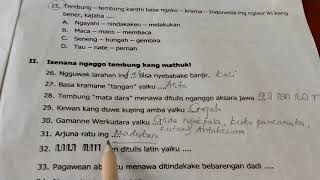 25. Tembung – tembung kanthi basa ngoko – krama – Indonesia ing ngisor iki kang
bener, kajaba ....
A. Ngayahi – nindakaken – melakukan
B. Maca – maos – membaca
C. Seneng – bungah – gembira
D. Tau – nate – pernah
II. Isenana nganggo tembung kang mathuk!
26. Ngguwak larahan ing bisa nyebabake banjir. Kali
27. Basa kramane "tangan" yaiku Asta
28. Tembung "mata dara" menawa ditulis nganggo aksara jawa
29. Kewan kang duwe kuping amba yaiku Gajah
30. Gamanne Werkudara yaiku Gada rujakpala, kuku pancanaka,
kutang Antakusuma
31. Arjuna ratu ing Madukara
32. ditulis latin yaiku ....
33. Pagawean menawa ditindakake bebarengan dadi ....